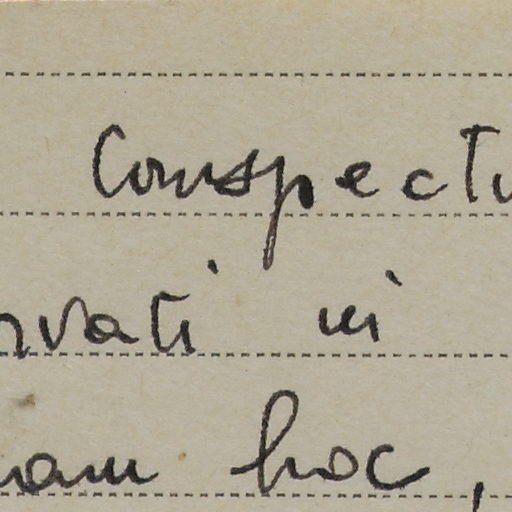 Conspectu
rvati in
nam hoc,